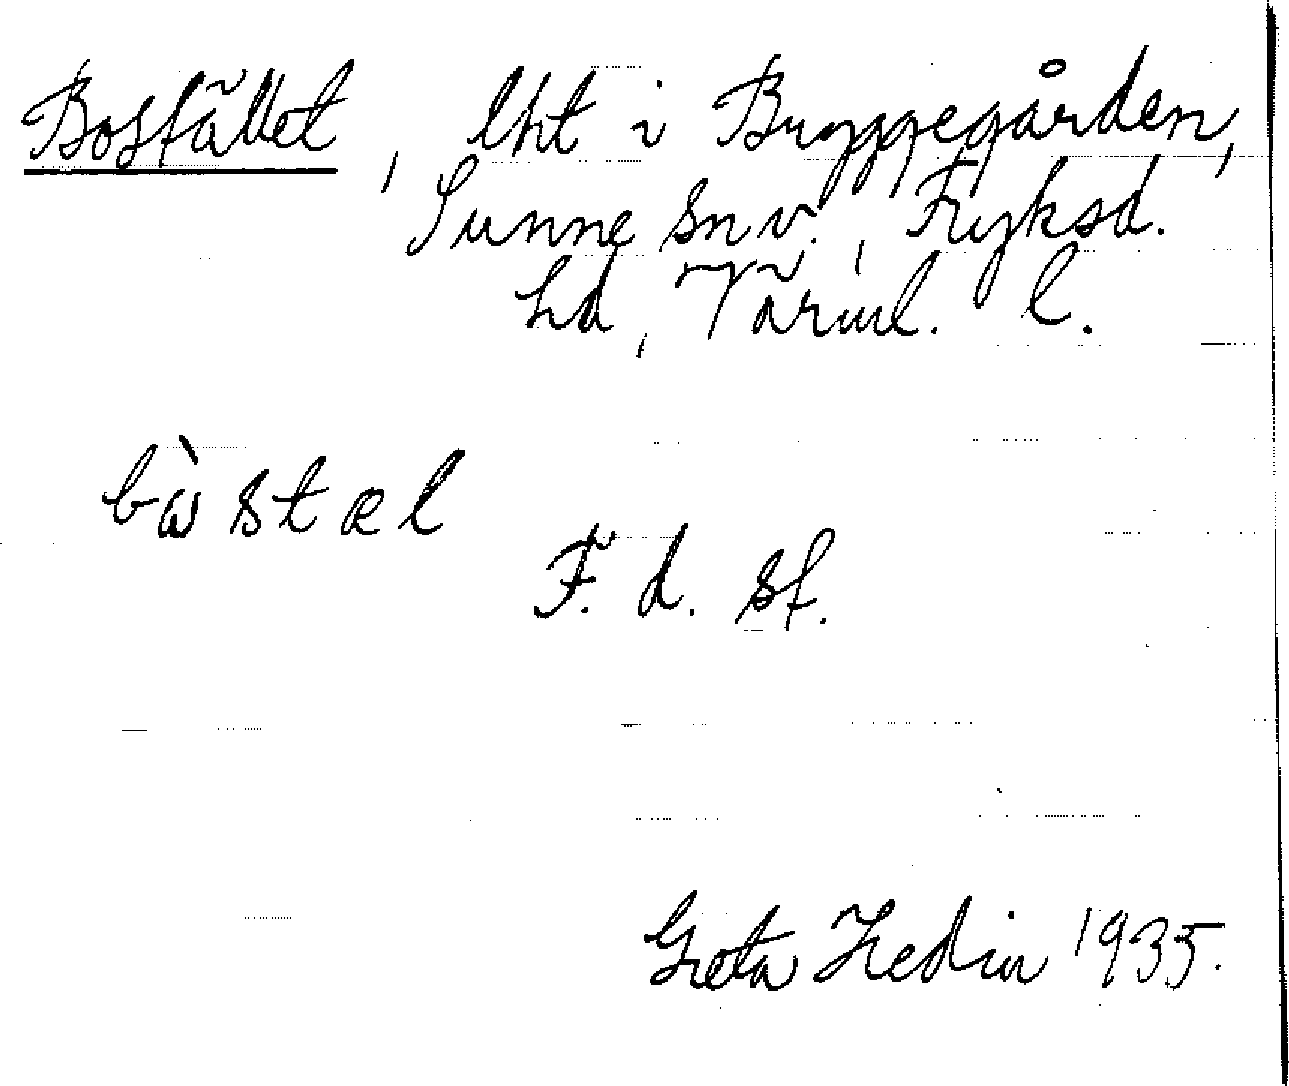 Bosfället, lht i Byggegården,
Sunne sn v., Fryksd.
hd, Värml. l.
bὼstæl
F. d. sf.
Greta Hedin 1935.